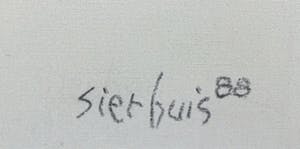 sierhuis 88